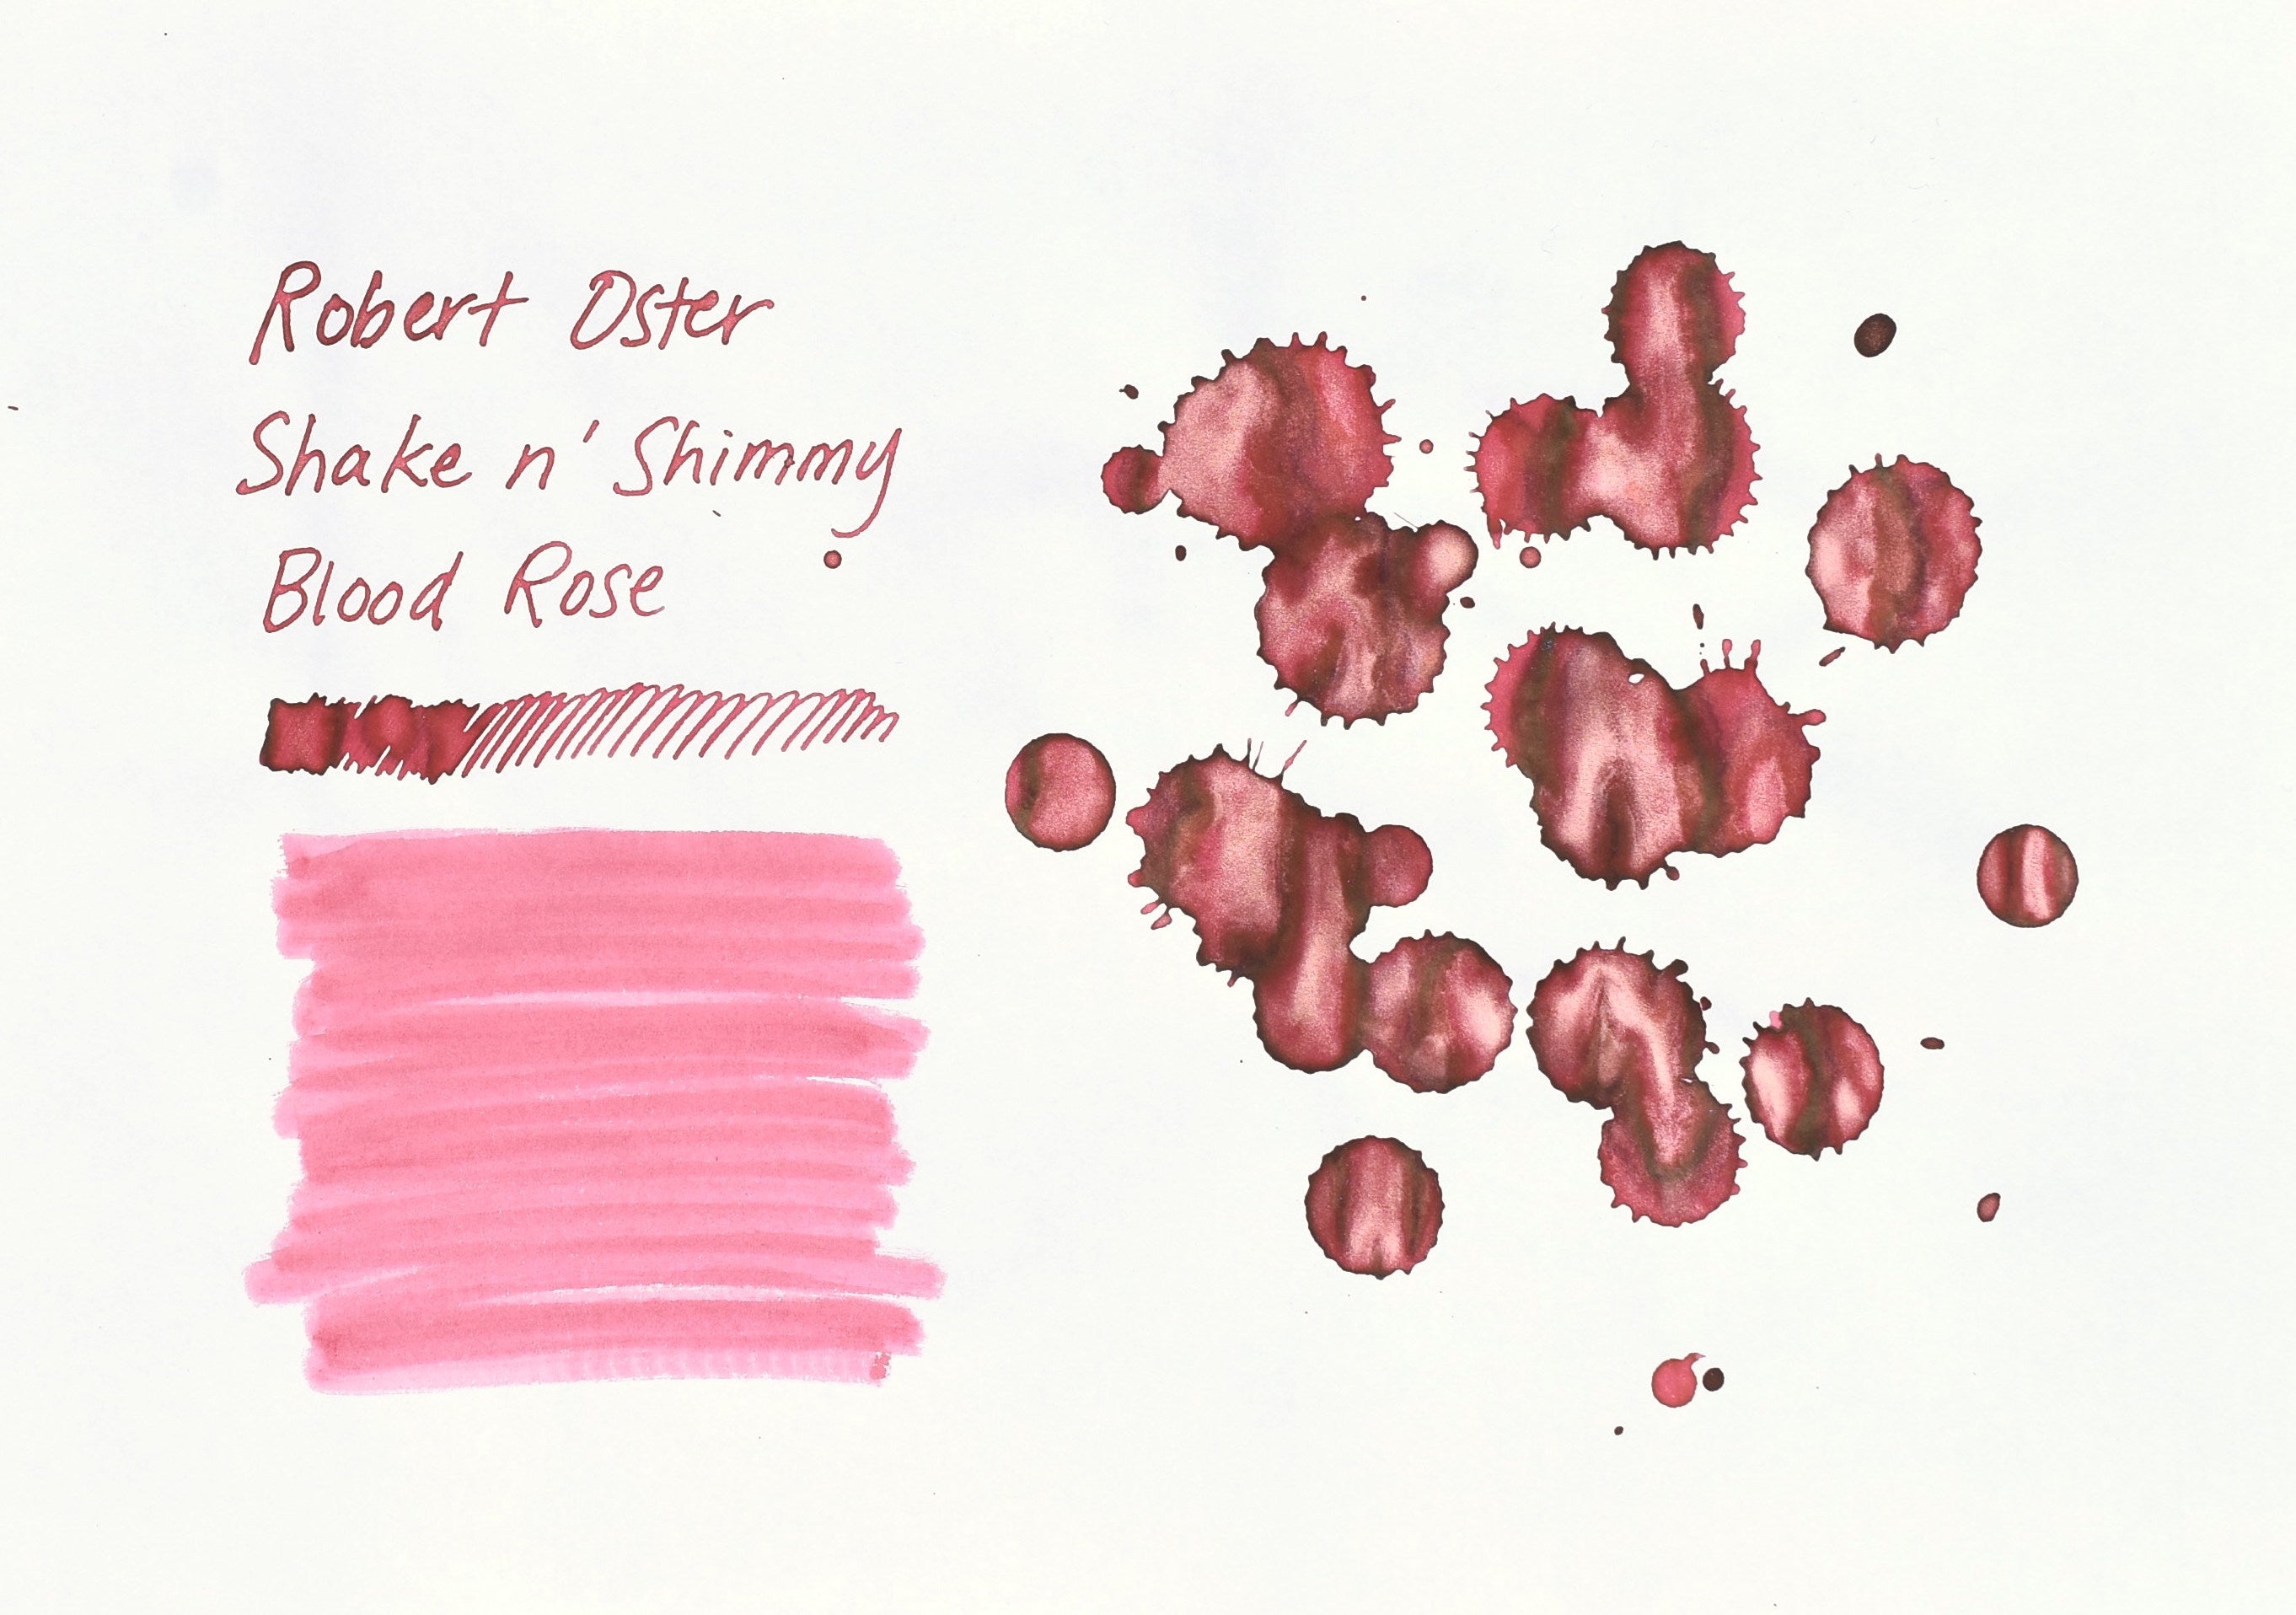 Robert Oster
Shake n' Shimmy
Blood Rose